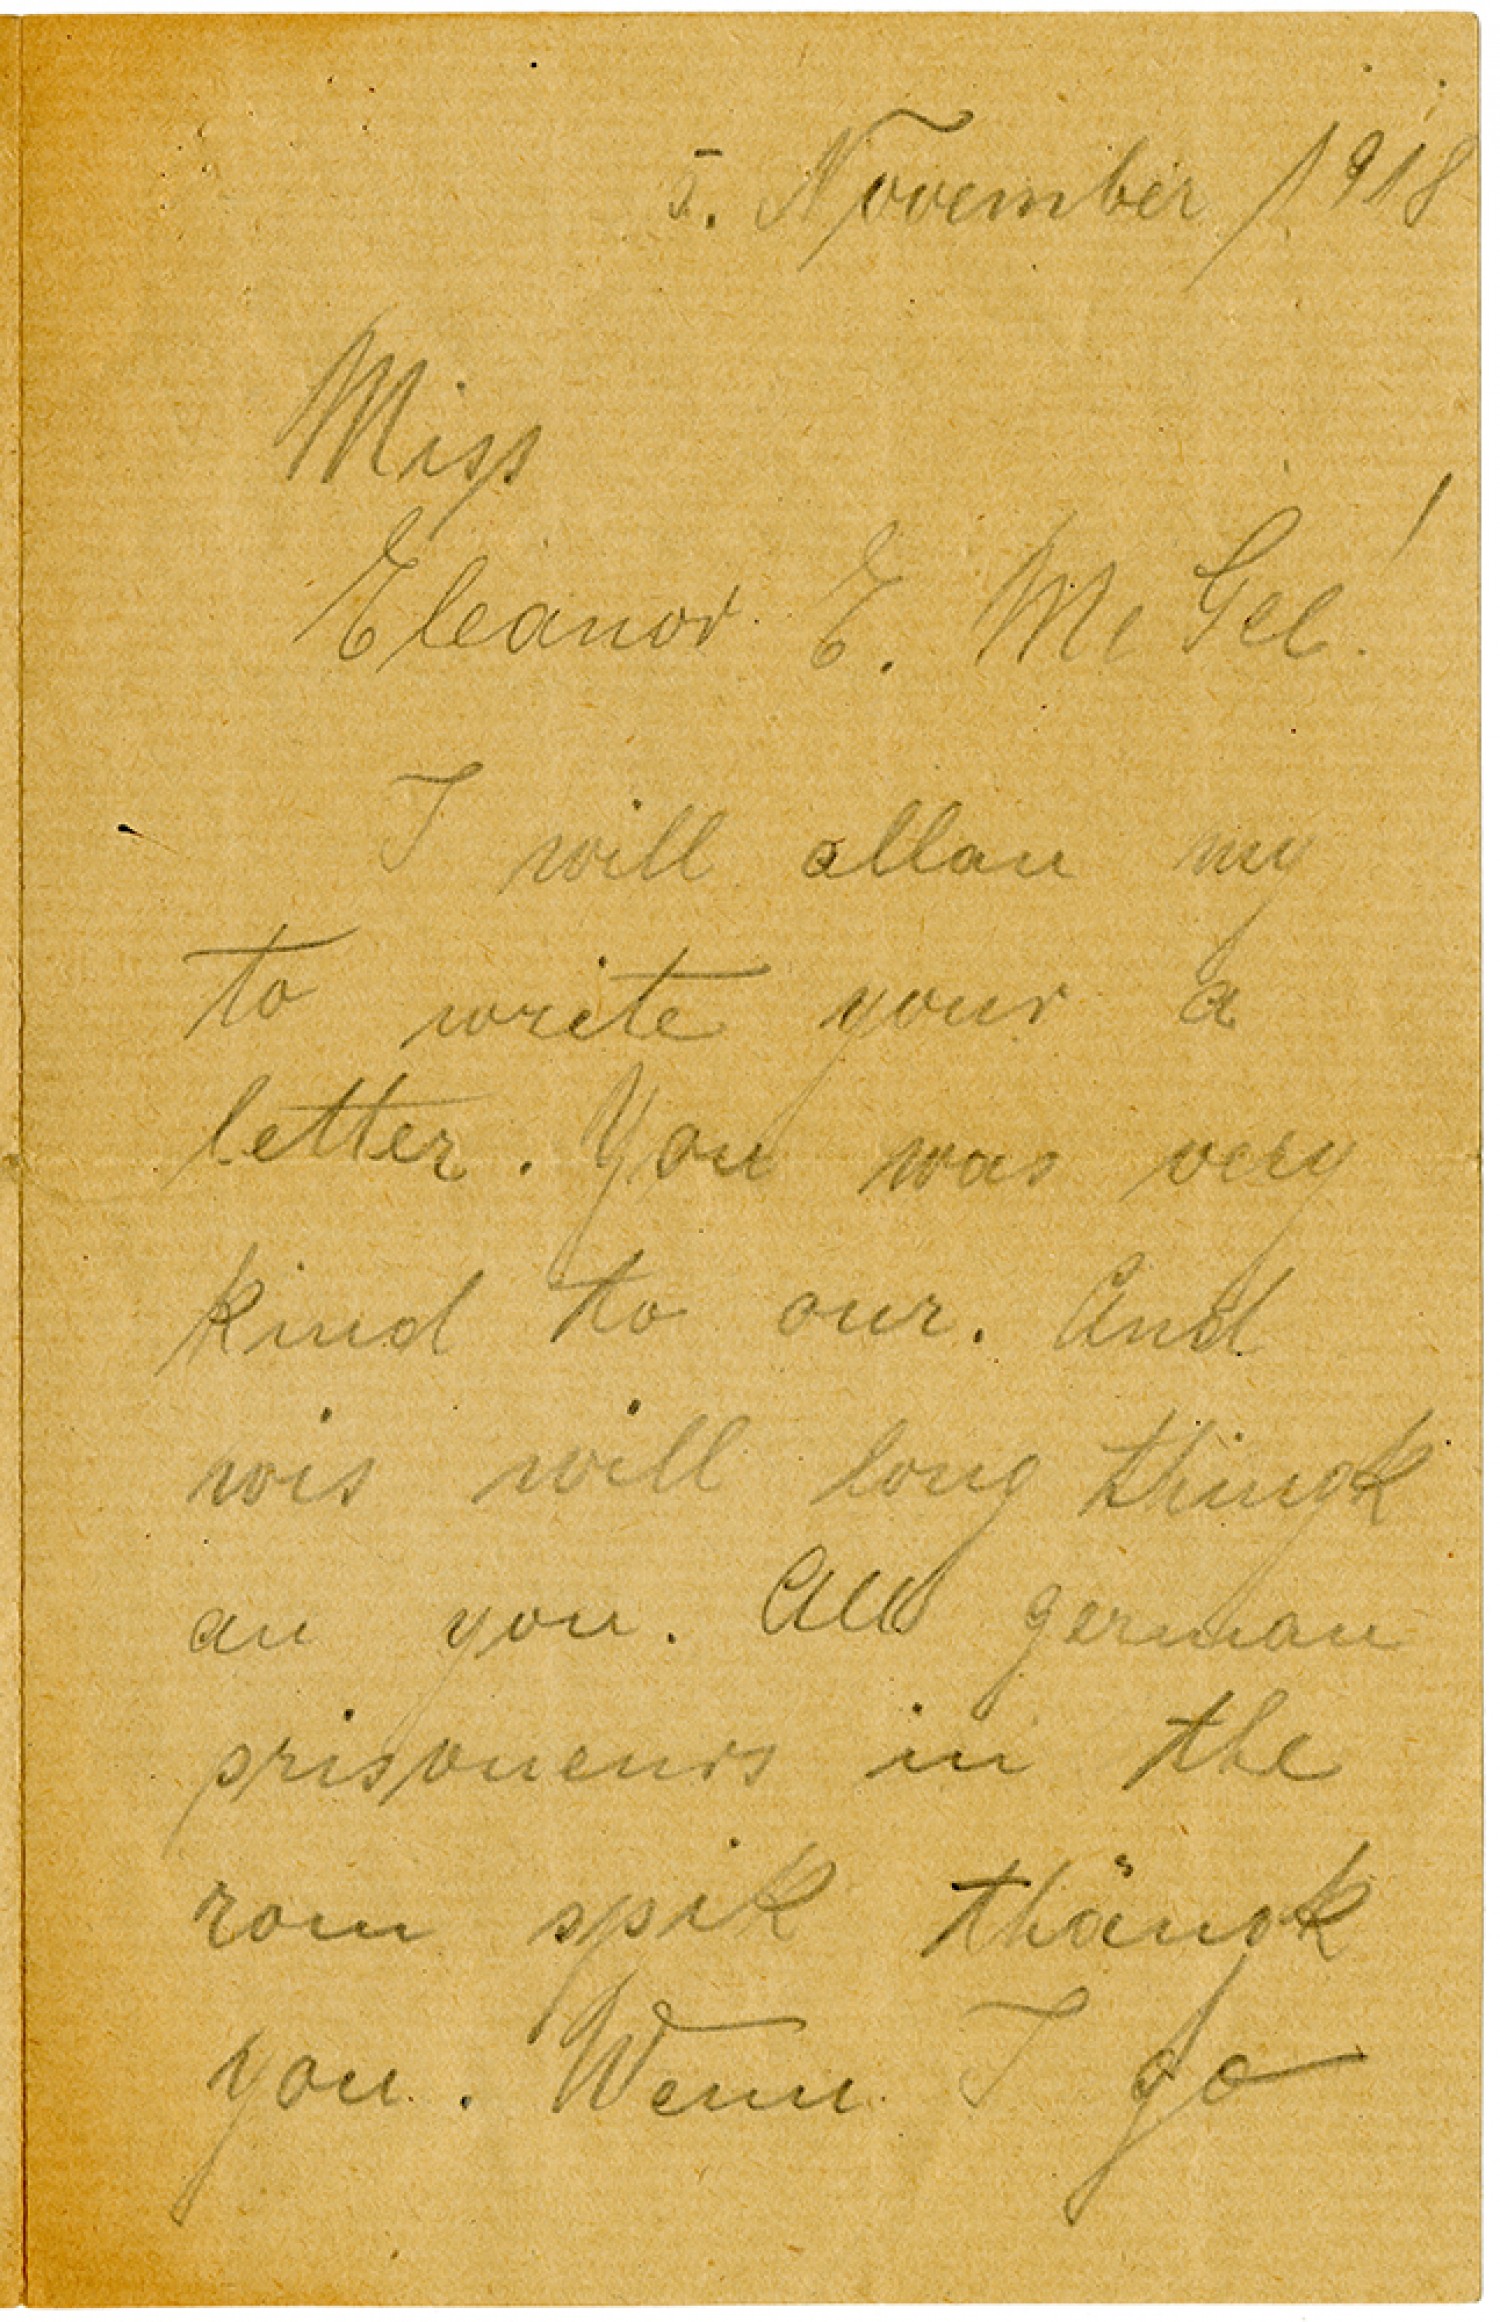 5. November 1918
Miss
Eleanor E. Mc Gee!
I will allau my
to write your a
letter. You was very
kind to our. And
wis will long thingk
an you. All german
prisoneurs in the
rom spik thängk
you. Wenn I go